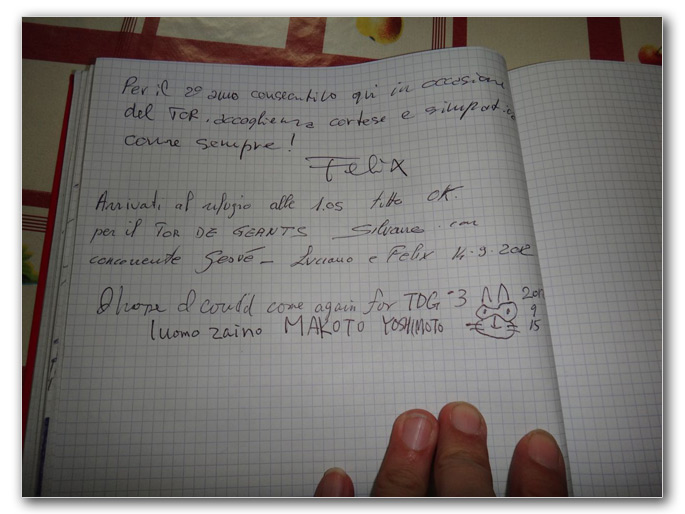 Per il 2° anno consecutivo qui in occasione
del TOR. accoglienza cortese e simpatica
come sempre!
Felix
Arrivati al rifugio alle 1.05 tutto OK.
per il TOR DE GEANTS Silvano
concorrente Luciano e Felix 14.9.2012
I hope I could come again for TDG #3 201
9
luomo zaino MAKOTO YOSHIMOTO 15